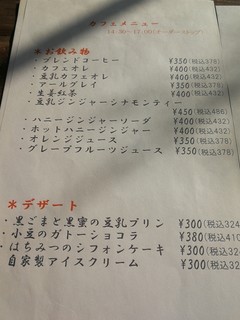 カフェメニュー
14:30～17:00(オーダーストップ)
＊お飲み物
・ブレンドコーヒー ¥350(税込378)
・カフェオレ ¥400(税込432)
・豆乳カフェオレ ¥400(税込432)
・アールグレイ ¥350(税込378)
・生姜紅茶 ¥400(税込432)
・豆乳ジンジャーシナモンティー
¥450(税込486)
・ハニージンジャーソーダ ¥400(税込432)
・ホットハニージンジャー ¥400(税込432)
・オレンジジュース ¥350(税込378)
・グレープフルーツジュース ¥350(税込378)
＊デザート
・黒ごまと黒蜜の豆乳プリン ¥300(税込324
・小豆のガトーショコラ ¥380(税込410
・はちみつのシフォンケーキ ¥300(税込324
自家製アイスクリーム ¥300(税込32